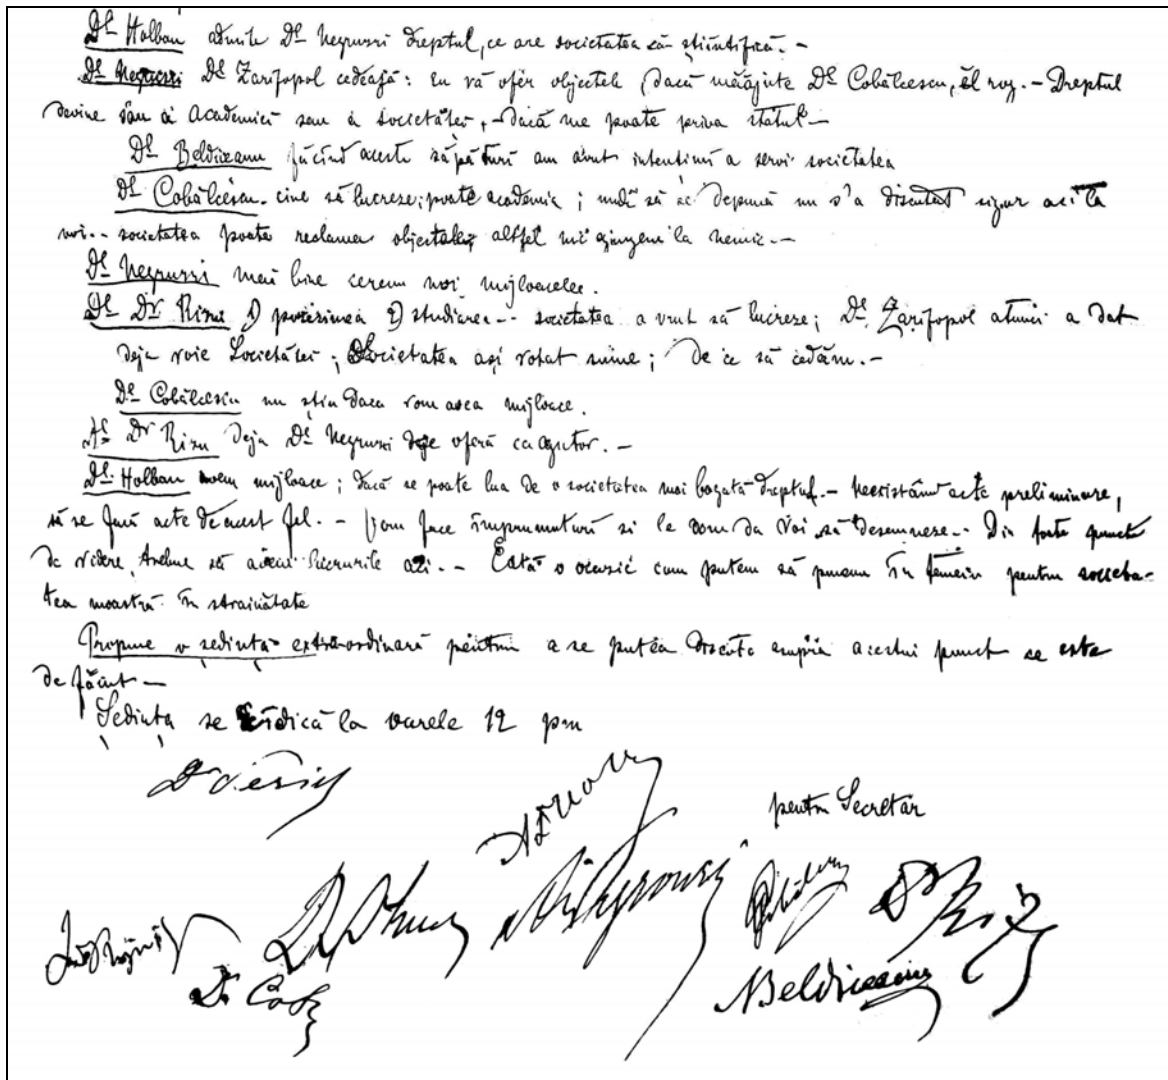 Dl Holban admite Dl Negruzzi dreptul, ce are societatea ca știintifică. –
Dl Negruzzi Dl Zarifopol cedează: Eu vă ofer objectele, dacă Dl Cobălcescu, îl rog. – Dreptul
devine sau a Academiei sau a societăței, – dacă me poate priva statul –
Dl Beldiceanu făcînd aceste săpături am avut intentiuni a servi societatea
Dl Cobălcescu. cine să lucreze; poate academia; să se depună nu s'a discutat sigur aci la
noi. – societatea poate reclama objectele; altfel nu ajungem la nemic. –
Dl Negruzzi mai bine cerem noi mijloacele.
Dl Dr Rizu 1) 2) studiarea – societatea a vrut să lucreze; Dl Zarifopol atunci a dat
deja voie Societăței; Societatea ași votat mine; de ce să cedăm. –
Dl Cobălcescu nu știu daca vom avea mijloace.
Dl Dr Rizu deja Dl Negruzzi oferă ca ajutor. –
Dl Holban avem mijloace; dacă se poate lua de o societatea mai bogată dreptul. – Neexistând acte preliminare,
să se facă acte de acest fel. – Vom face împrumuturi si le vom da voi să desemneze. – Din toate puncte
de videre, trebue să avem lucrurile azi. – Eată o ocazie cum putem să punem în temein pentru societa-
tea noastră în strainătate
Propune o ședință extra-ordinară pentru a se putea discuta asupra acestui punct ce este
de făcut –
Ședința se rîdică la oarele 12 pm
pentru Secretar
N Beldiceanu